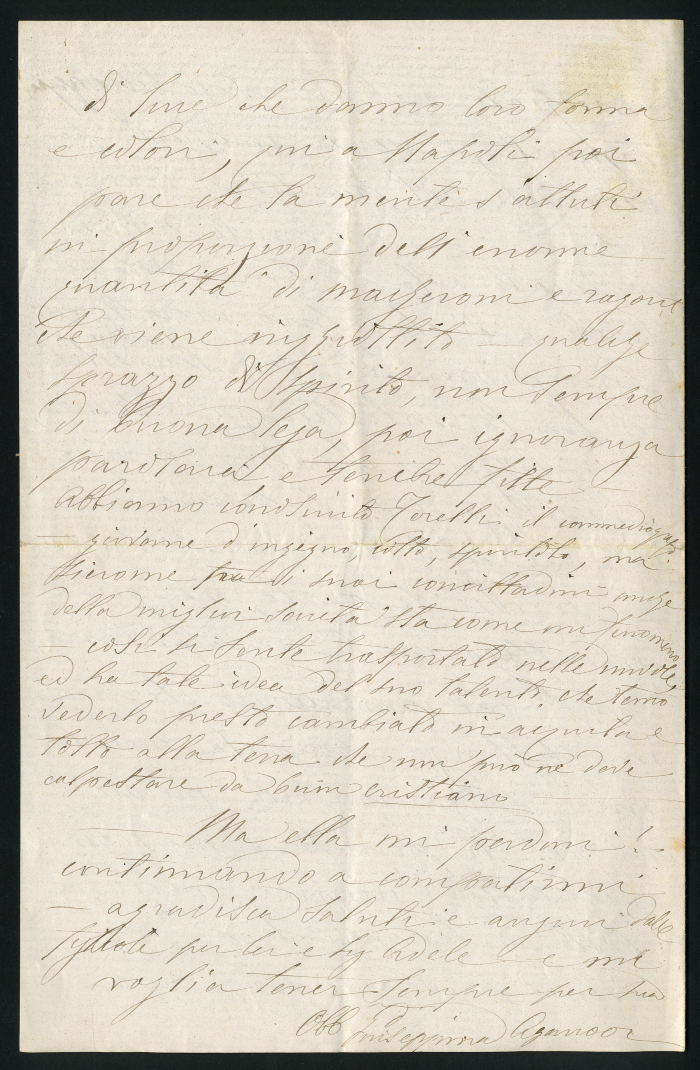 di luce che danno loro forma
e colori, qui a Napoli poi
pare che la mente s'attuti
in proporzione dell'enorme
quantità di maccheroni e ragout
che viene inghiottito – qualche
sprazzo di spirito, non sempre
di buona lega, poi ignoranza
parolaia e tenebre fitte
Abbiamo conosciuto Torelli il commediografo.
– giovane d'ingegno, colto, spiritoso, ma
siccome fra i suoi concittadini anche
della miglior società sta come un fenomeno
– così si sente trasportato nelle nuvole,
ed ha tale idea del suo talento che temo
vederlo presto cambiato in aquila e
tolto alla terra che non può nè deve
calpestare da buon cristiano
Ma ella mi perdoni! –
continuando a compatirmi
– agradisca saluti e auguri dalle
figliole per lei e Adele – e mi
voglia tener sempre per sua
Obb Giuseppina Aganoor